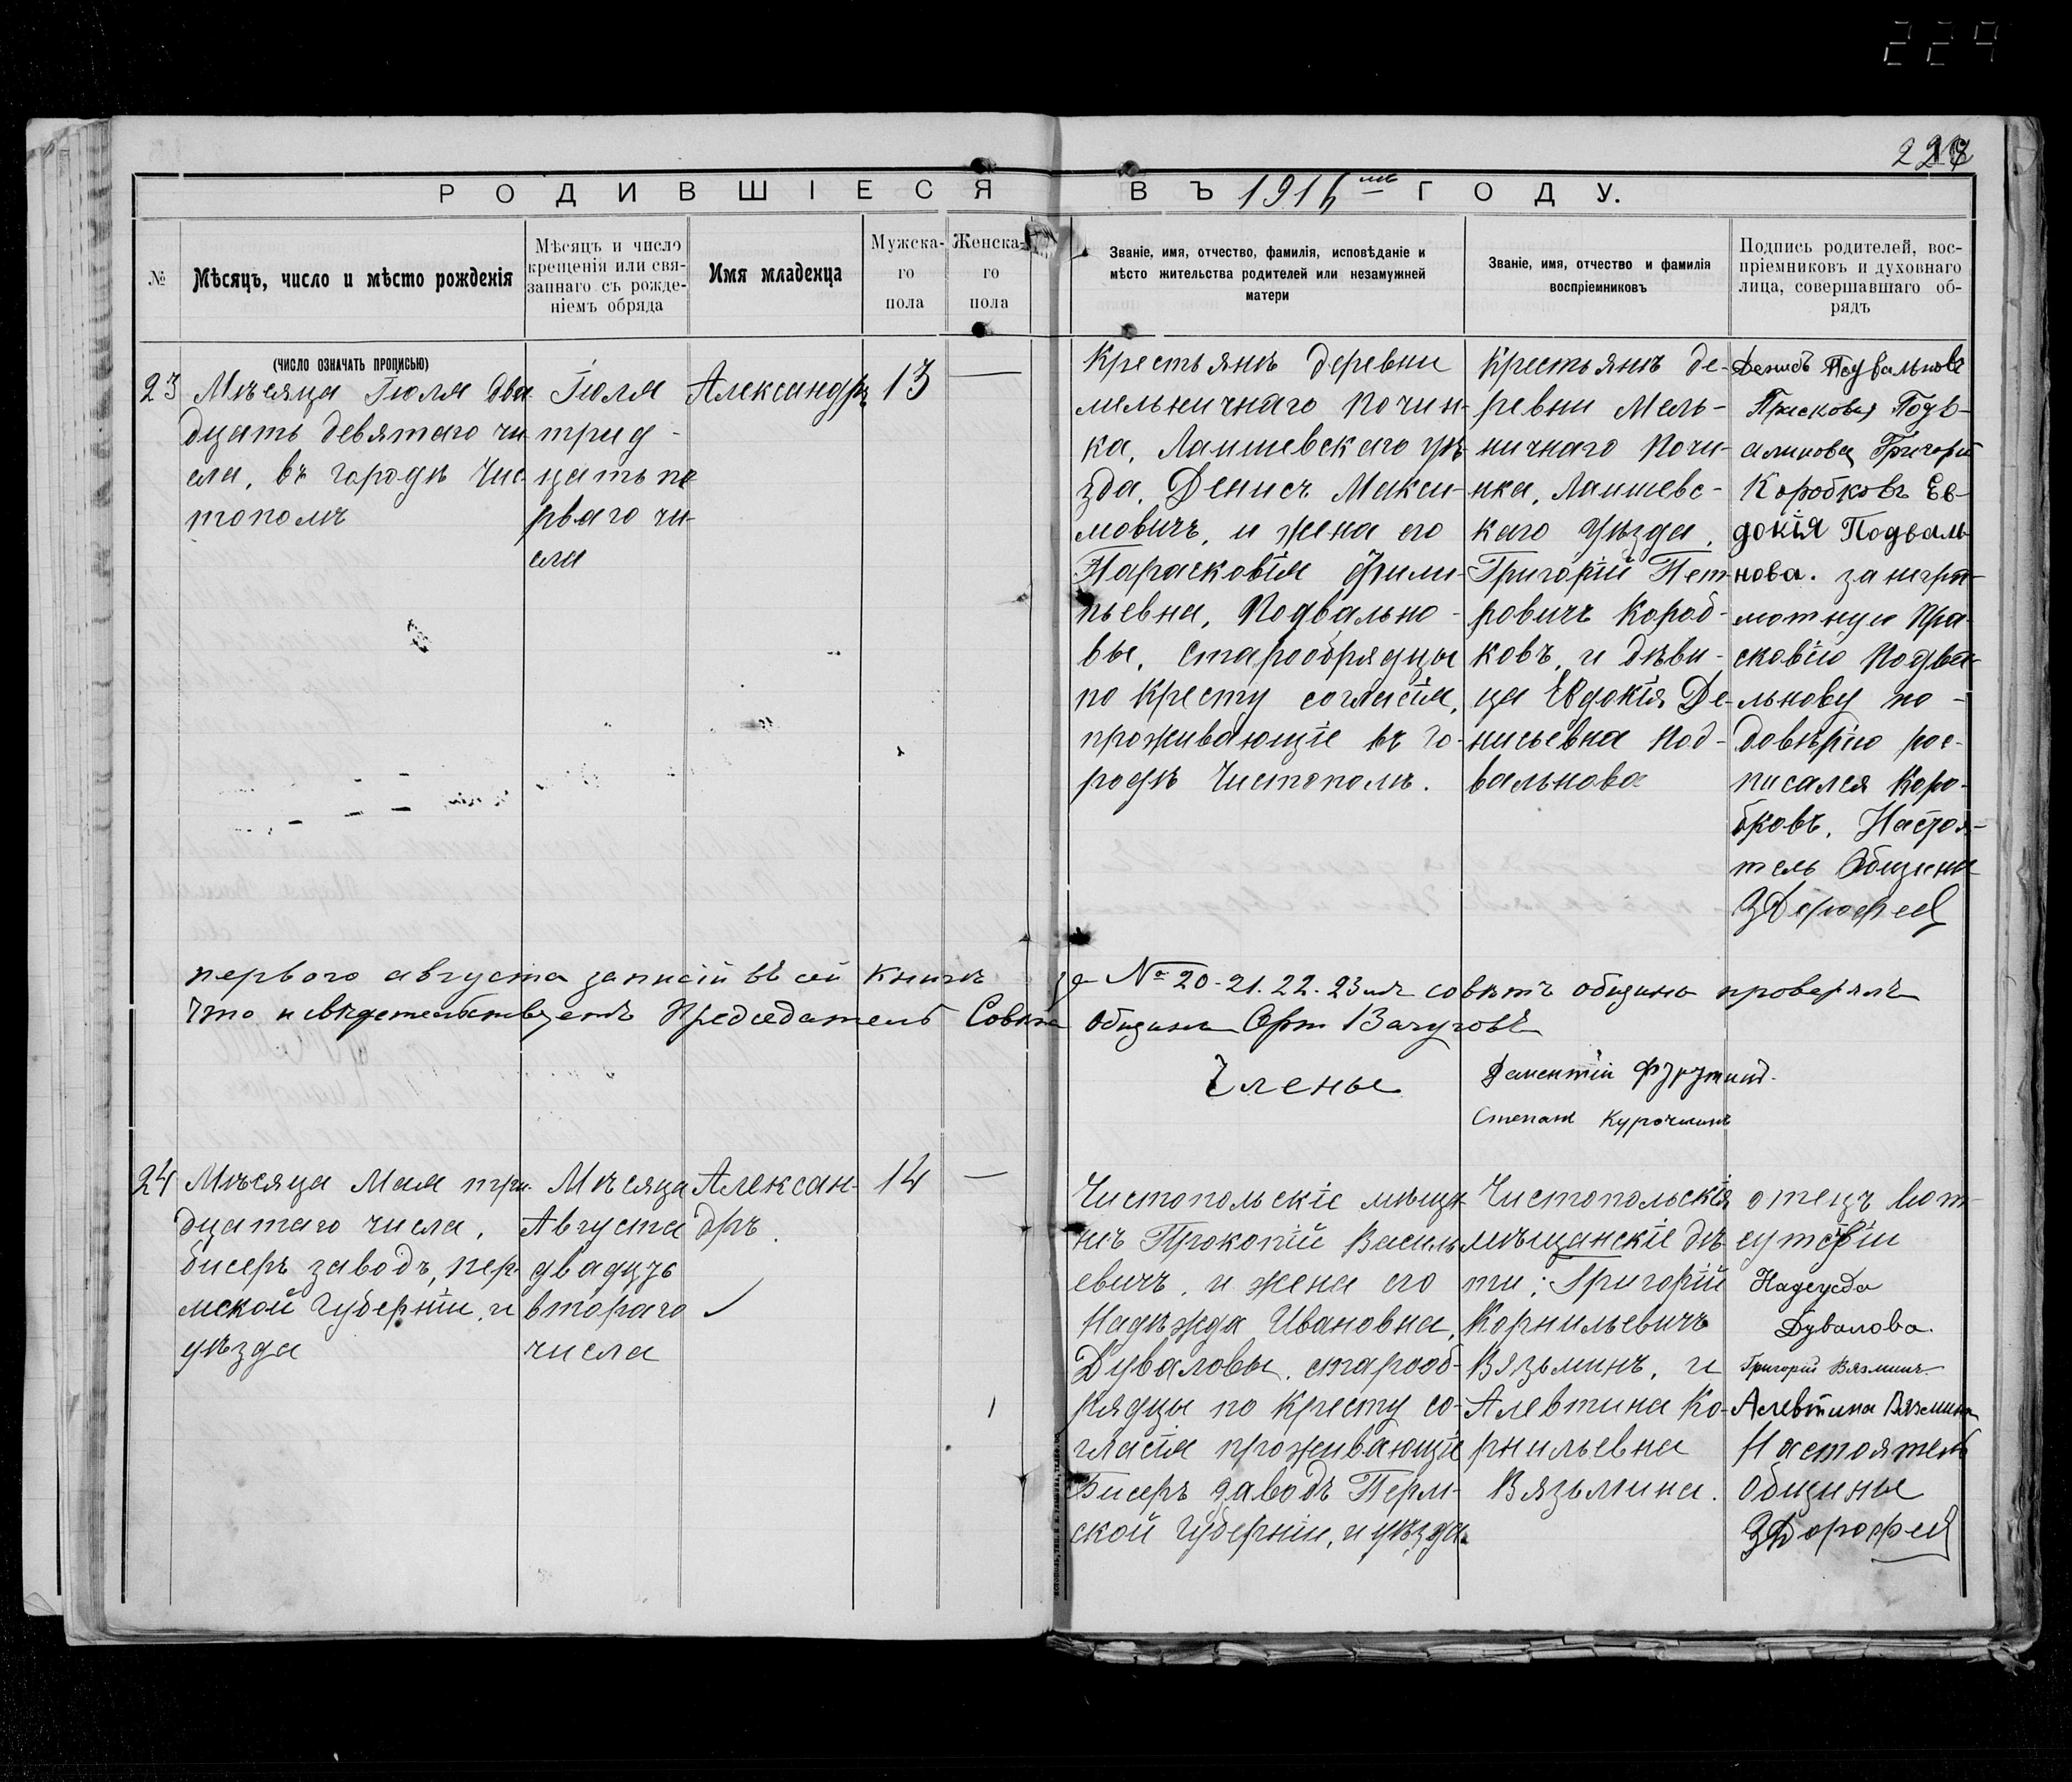 224
РОДИВШІЕСЯ ВЪ 1916 мъ ГОДУ.
№
Мѣсяцъ, число и мѣсто рожденія
Мѣсяцъ и число
крещенія или свя-
заннаго съ рожде-
ніемъ обряда
Имя младенца
Мужска-
го
пола
Женска-
го
пола
Званіе, имя, отчество, фамилія, исповѣданіе и
мѣсто жительства родителей или незамужней
матери
Званіе, имя, отчество и фамилія
воспріемниковъ
Подпись родителей, вос-
пріемниковъ и духовнаго
лица, совершавшаго об-
рядъ
(ЧИСЛО ОЗНАЧАТЬ ПРОПИСЬЮ)
23
Мѣсяца Іюля два
дцать девятаго чи
сла, въ городѣ Чис-
тополѣ
Іюля
трид-
цать пе
рваго чи-
сла
Александръ
13
—
Крестьянъ деревни
мельничнаго Почин-
ка, Лаишевскаго уѣ-
зда, Денисъ Макси-
мовичъ, и жена его
Парасковія Фили-
пьевна, Подвально-
вы, старообрядцы
по Кресту согласія,
проживающіе въ Го-
родѣ Чистополѣ.
Крестьянъ де-
ревни Мель-
ничнаго Почи-
нка, Лаишевс-
каго Уѣзда,
Григорій Пет-
ровичъ Короб-
ковъ, и дѣви-
ца Евдокія Де-
нисьевна Под-
вальнова
Денисъ Подвальновъ
Прасковья Подв-
альнова Григорій
Коробковъ Ев-
докія Подваль
нова. за негра-
мотную Пра-
сковію Подва-
льнову по-
довѣрію рос-
писался Коро-
бковъ, Настоя-
тель Общины
Дорофей
перваго августа записи въ сей книгѣ за № 20-21.22.23мъ совѣтъ общины проверялъ
что и свѣдетельствуетъ Председатель Совѣта общины
Члены
Степанъ Курочкинъ
24
Мѣсяца Мая три-
дцатаго числа,
бисеръ заводъ, пер-
мской Губерніи, и
уѣзда
Мѣсяца
Августа
двадцть
втораго
числа
Алексан-
дръ.
14
—
Чистопольскіе мѣща-
нѣ Прокопій Василь
евичъ, и жена его
Надѣжда Ивановна,
Дуваловы, старооб-
рядцы по Кресту со-
гласія проживающіе
Бисеръ заводъ Перм-
ской Губерніи, и уѣзда.
Чистопольскія
мѣщанскіе дѣ-
ти: Григорій
Корнильевичъ
Вязьминъ, и
Алевтина Ко-
рнильевна
Вязьмина.
отецъ вот-
сутствіи
Надежда
Дувалова.
Григорій Вязминъ
Алевтина Вяземина
Настоятель
Общины
Дорофей